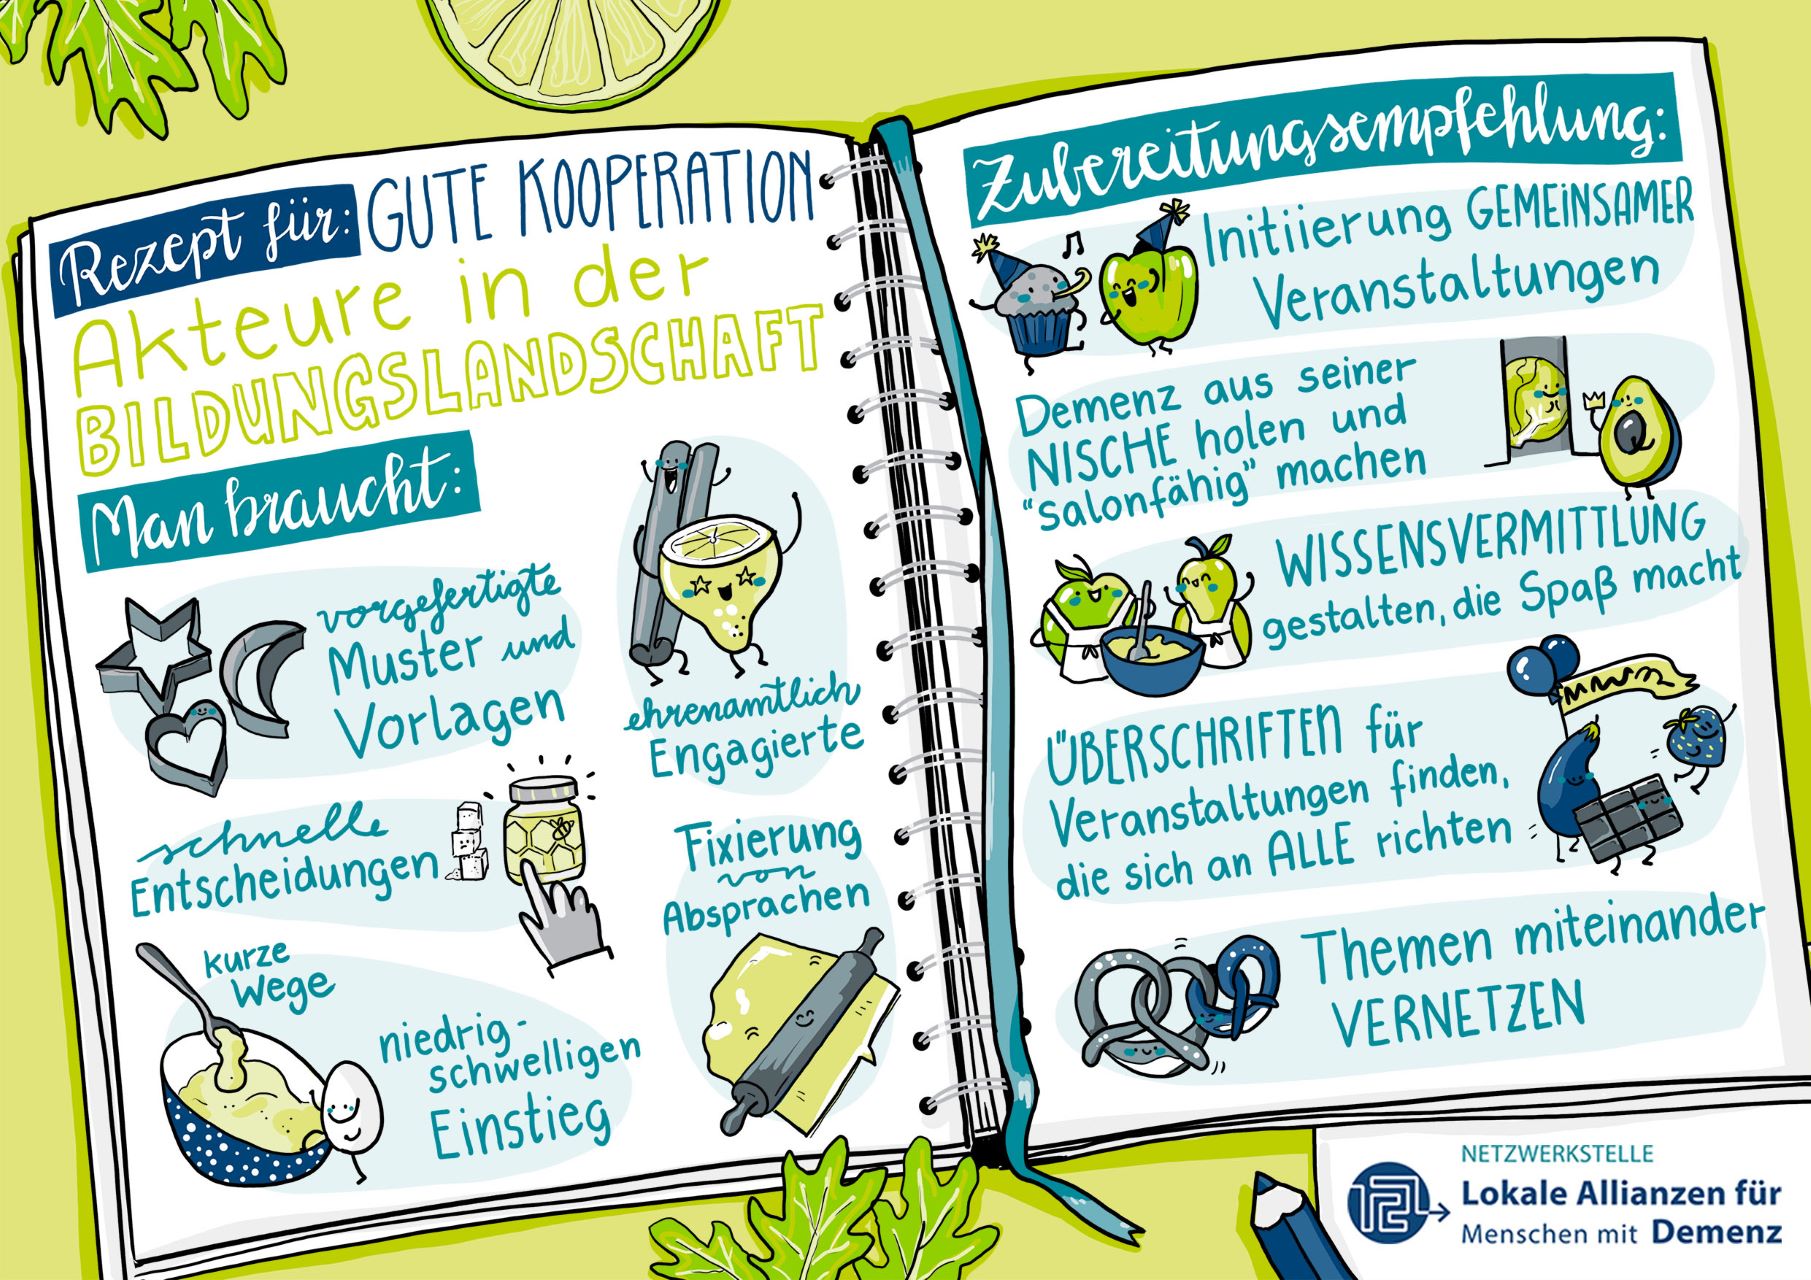 Rezept für: GUTE KOOPERATION
Akteure in der
BILDUNGSLANDSCHAFT
Man braucht:
vorgefertigte
Muster und
Vorlagen
ehrenamtlich
Engagierte
schnelle
Entscheidungen
Fixierung
von
Absprachen
kurze
Wege
niedrig-
schwelligen
Einstieg
Zubereitungsempfehlung:
Initiierung GEMEINSAMER
Veranstaltungen
Demenz aus seiner
NISCHE holen und
"salonfähig" machen
WISSENSVERMITTLUNG
gestalten, die Spaß macht
ÜBERSCHRIFTEN für
Veranstaltungen finden,
die sich an ALLE richten
Themen miteinander
VERNETZEN
NETZWERKSTELLE
Lokale Allianzen für
Menschen mit Demenz